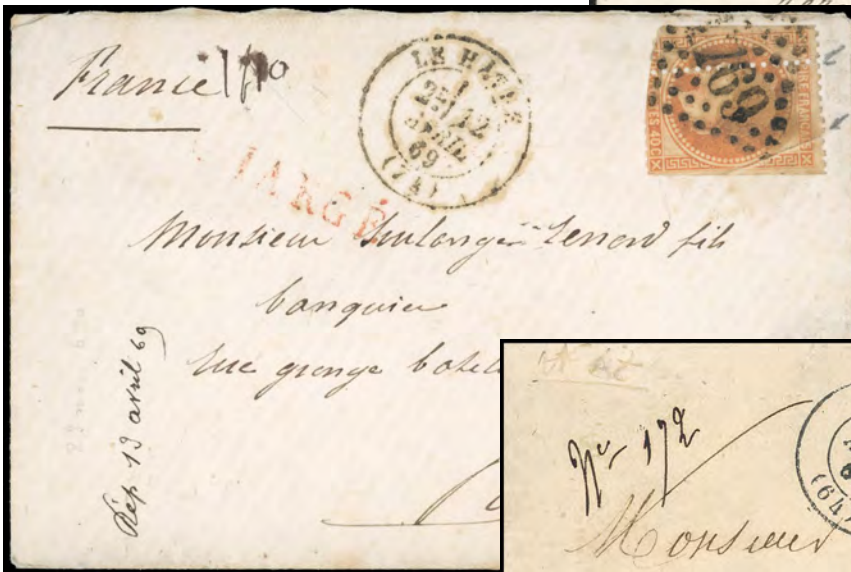 France
LE HAVRE
2E
12
AVRIL
69
(74)
169
40C
CHARGÉ
Monsieur Boulanger Lenord fils
banquier
rue grange batel
Rép 13 avril 69
No 172
(64)
Monsieur